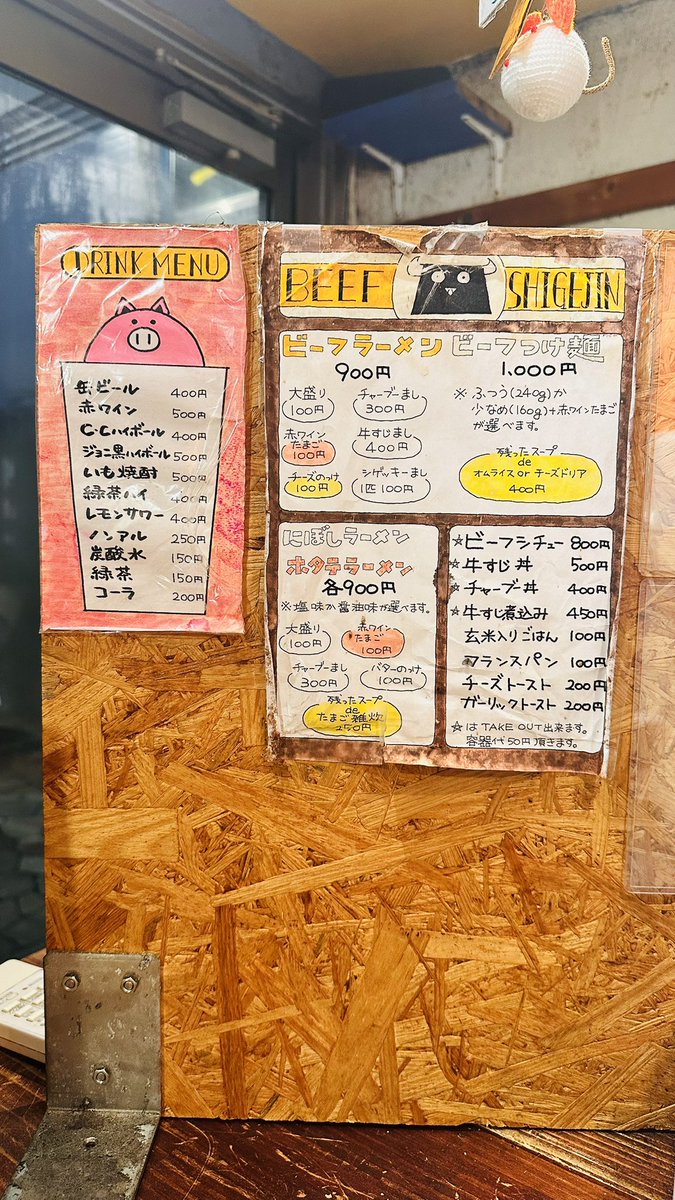 DRINK MENU
缶ビール 400円
赤ワイン 500円
C.Cハイボール 400円
ジョニ黒ハイボール 500円
いも焼酎 500円
緑茶ハイ 400円
レモンサワー 400円
ノンアル 250円
炭酸水 150円
緑茶 150円
コーラ 200円
BEEF SHIGEJIN
ビーフラーメン ビーフつけ麺
900円 1,000円
大盛り 100円
チャーブーまし 300円
赤ワインたまご 100円
牛すじまし 400円
チーズのっけ 100円
シゲッキーまし 1匹 100円
※ふつう(240g)か
少なめ(160g)+赤ワインたまご
が選べます。
残ったスープ
de
オムライス or チーズドリア
400円
にぼしラーメン
ホタテラーメン
各900円
※塩味か醤油味が選べます。
大盛り 100円
赤ワインたまご 100円
チャーブーまし 300円
バターのっけ 100円
残ったスープ
de
たまご雑炊
250円
☆ビーフシチュー 800円
☆牛すじ丼 500円
☆チャーブ丼 400円
☆牛すじ煮込み 450円
玄米入りごはん 100円
フランスパン 100円
チーズトースト 200円
ガーリックトースト 200円
☆は TAKE OUT出来ます。
容器代50円頂きます。